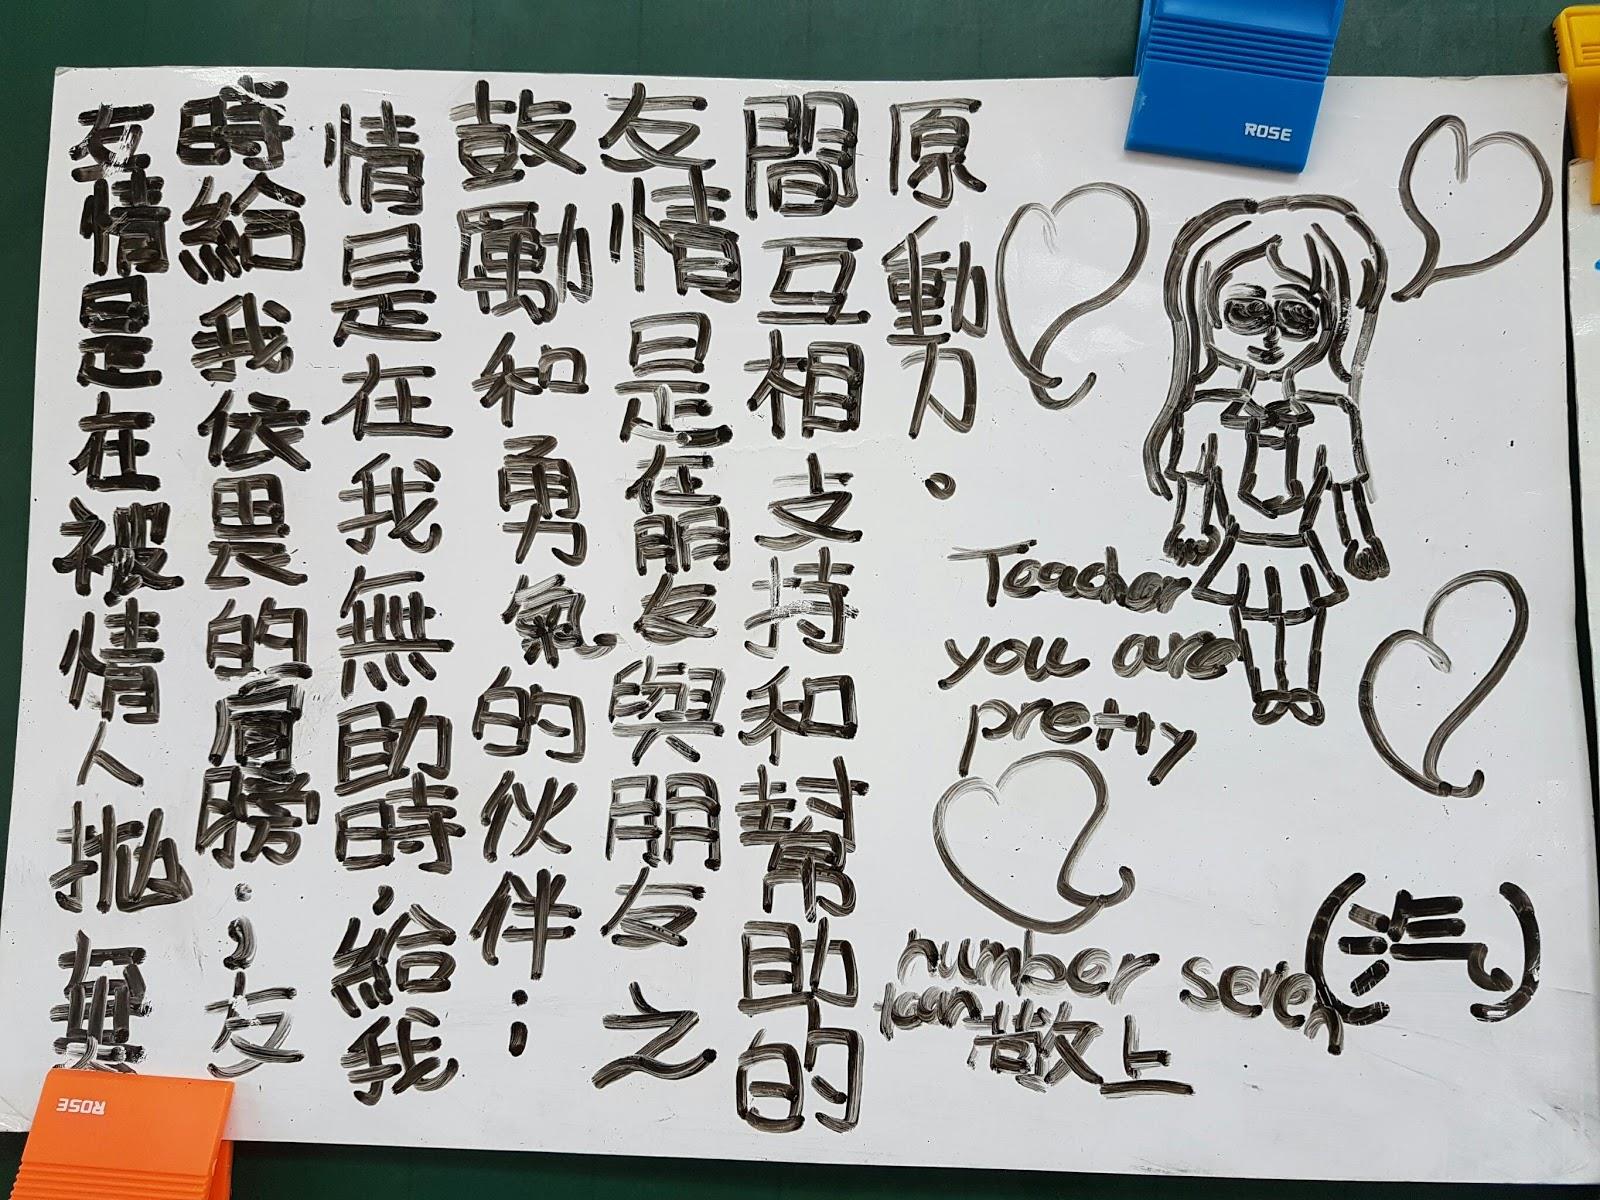 友情是在被情人拋棄
時給我依畏的肩膀；友
情是在我無助時，給我
鼓勵和勇氣的伙伴；
友情是在朋友與朋友之
間互相支持和幫助的
原動力。
Teacher
you are
pretty
number seven
敬上
ROSE
ROSE